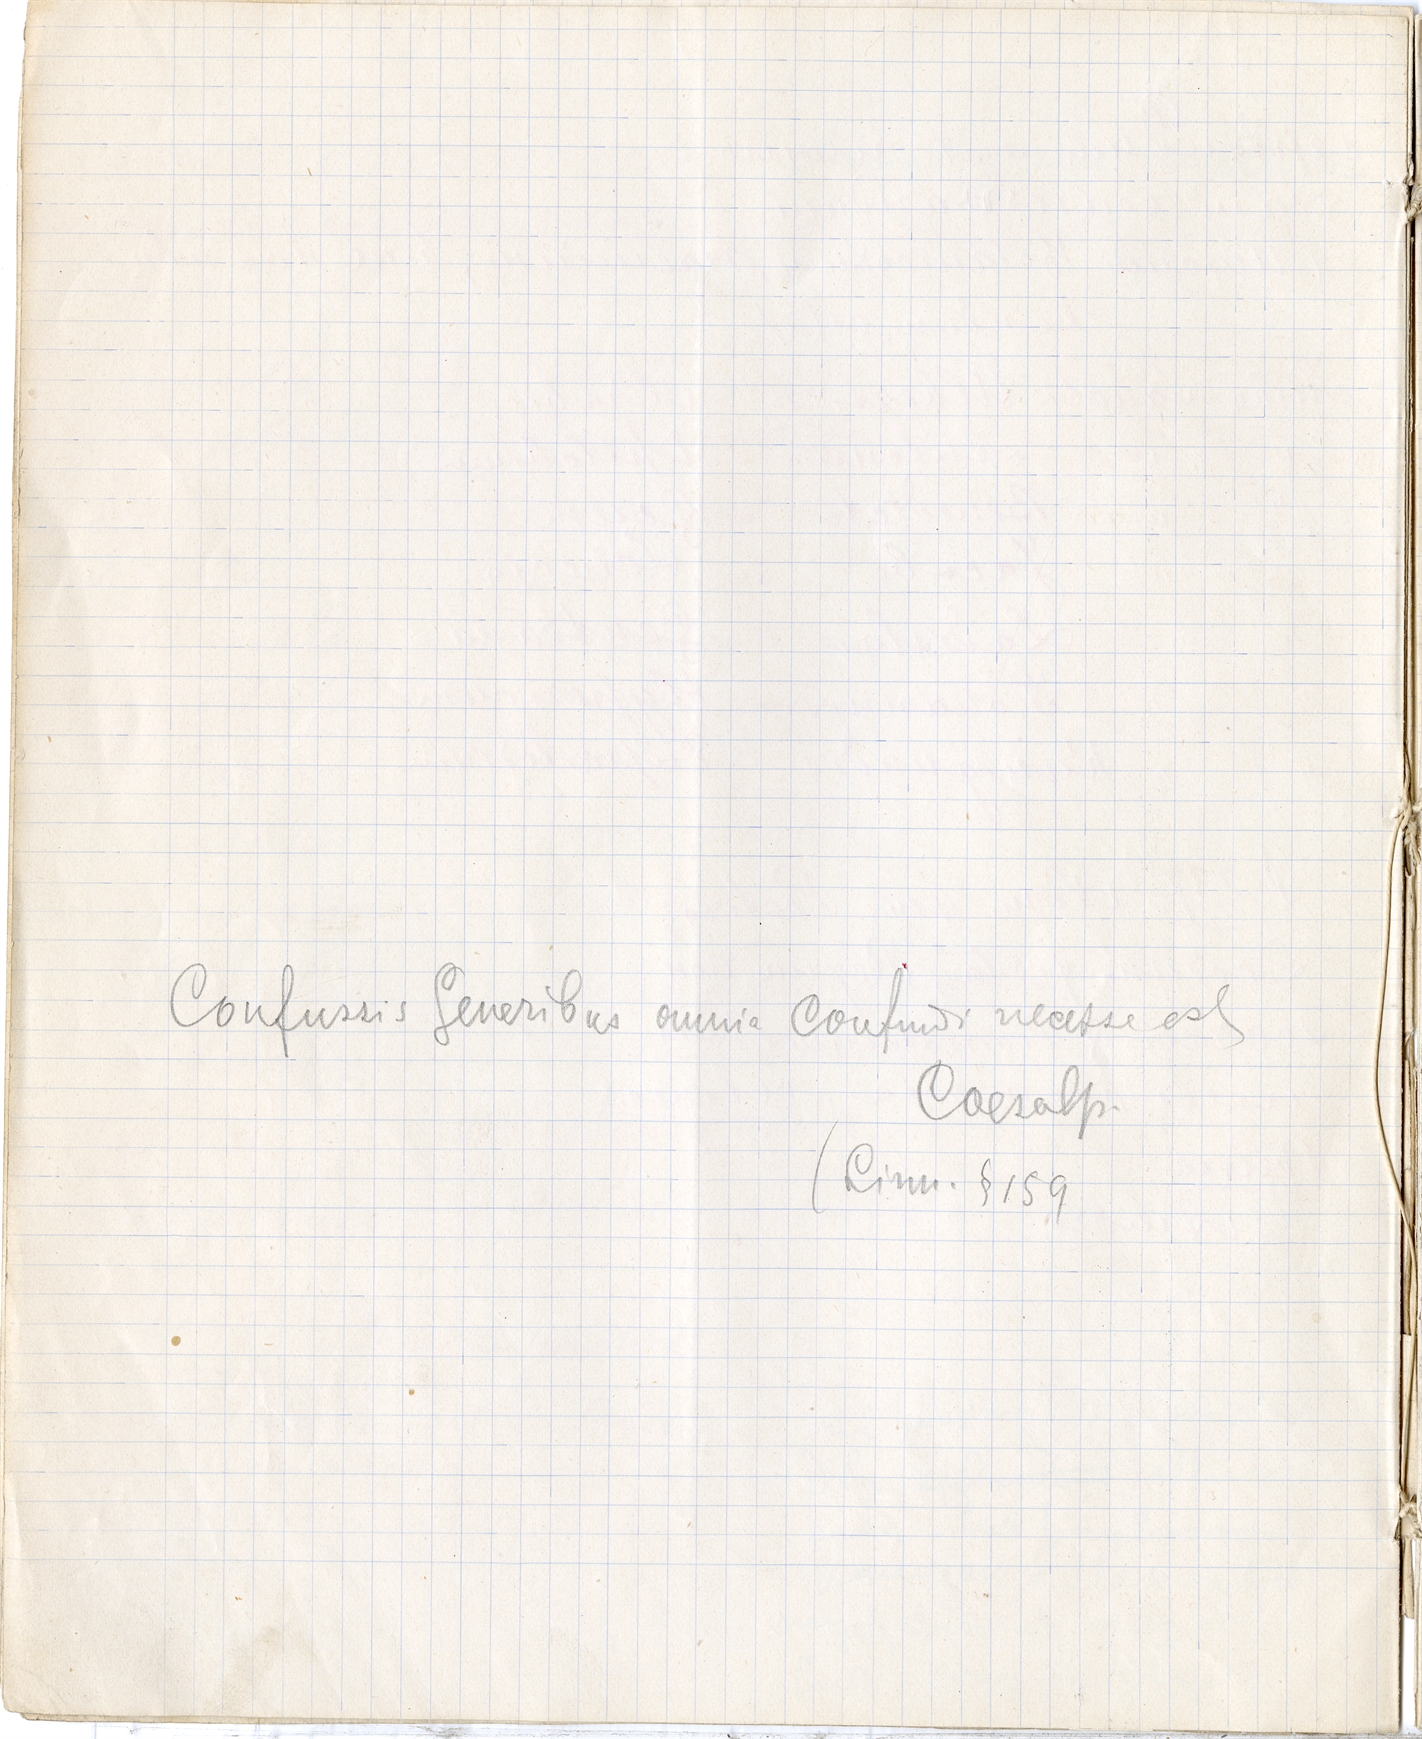 Confussis generibus omnia confundi necesse est
Caesalp.
(Linn. § 159